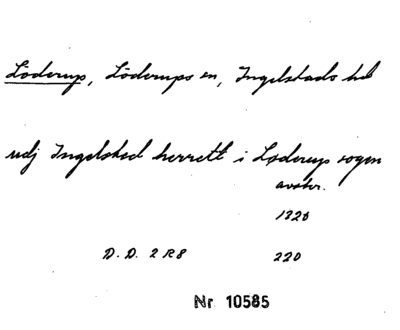 Löderup, Löderups sn, Ingelstads hd
udj Ingelsted herrett i Løderup sogen
avskr.
1320
D.D. 2 R 8 220
Nr 10585